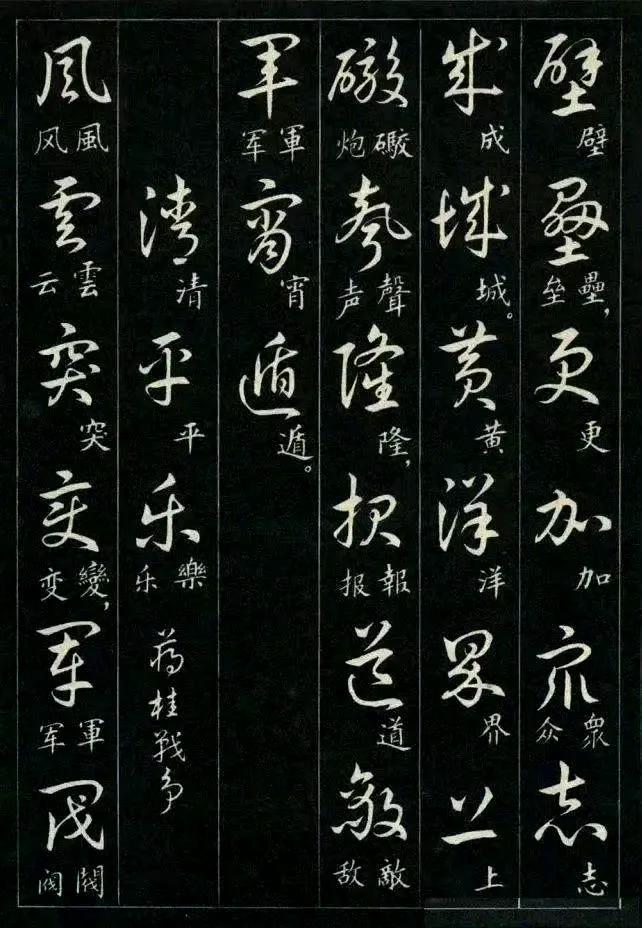 壁壘更加衆志
壁 垒壘， 更 加 众衆 志
成城黄洋界上
成 城。 黄 洋 界 上
礮聲隆报道敵
炮礮 声聲 隆， 报報 道 敌敵
軍宵遁
军軍 宵 遁。
清平乐
清 平 乐樂
蒋桂戰争
风云突变军阀
风風 云雲 突 变變， 军軍 阀閥